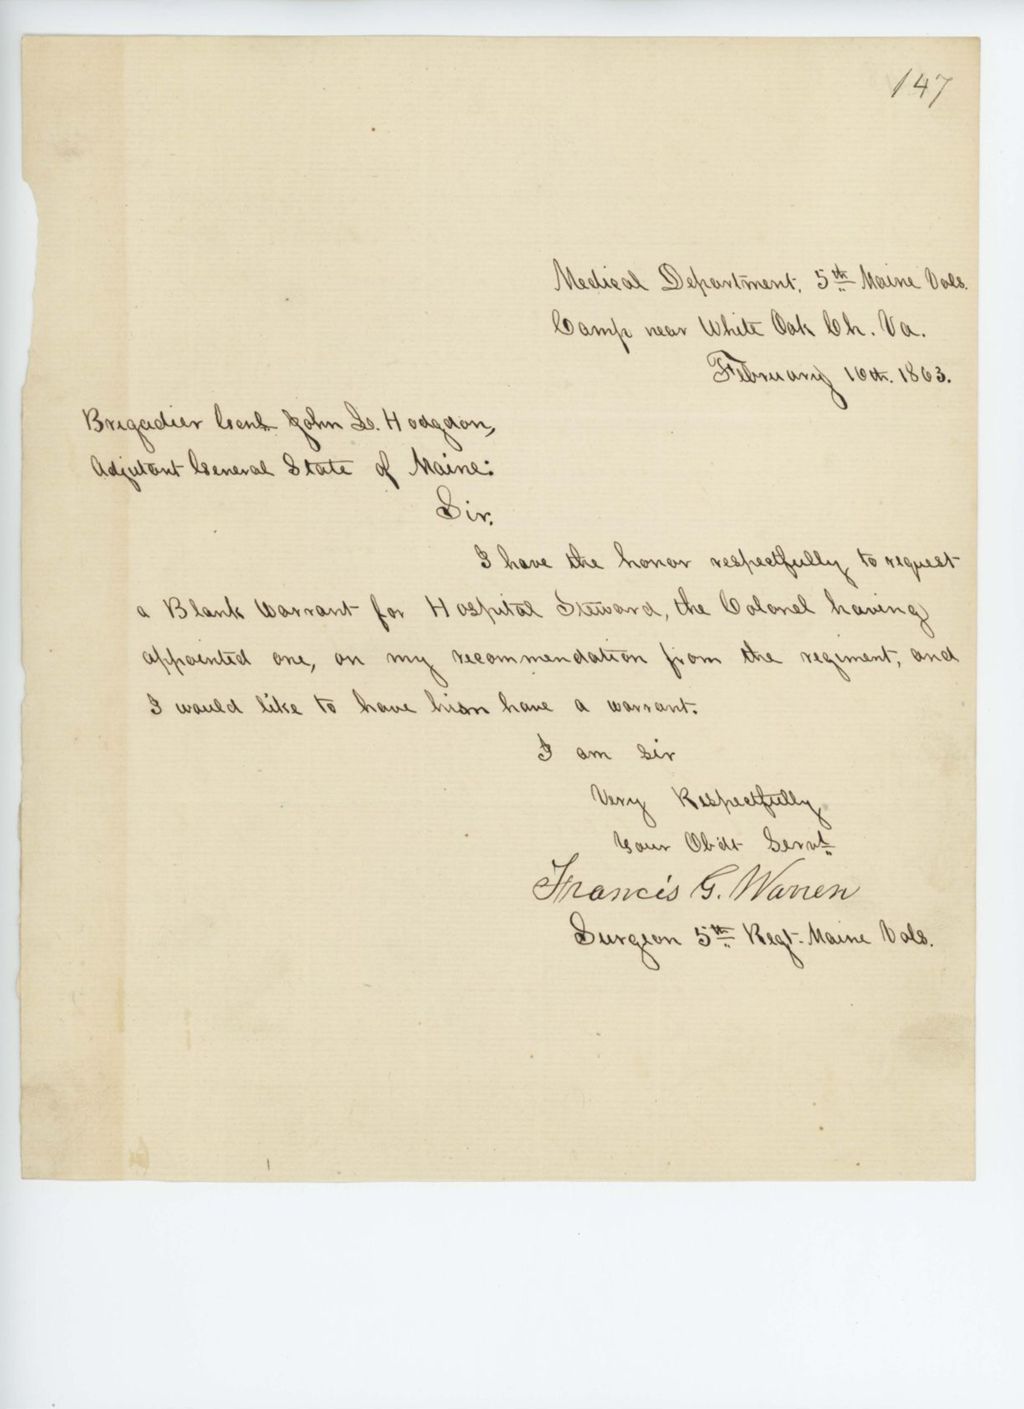 147
Medical Department, 5th Maine Vols.
Camp near White Oak Ch. Va.
February 10th. 1863.
Brigadier Genl. John L. Hodgdon,
Adjutant General State of Maine:
Sir.
I have the honor respectfully to request
a Blank Warrant for Hospital Steward, the Colonel having
appointed one, on my recommendation from the regiment, and
I would like to have him have a warrant.
I am Sir
Very Respectfully
Your Obdt Servt.
Francis G. Warren
Surgeon 5th Regt. Maine Vols.